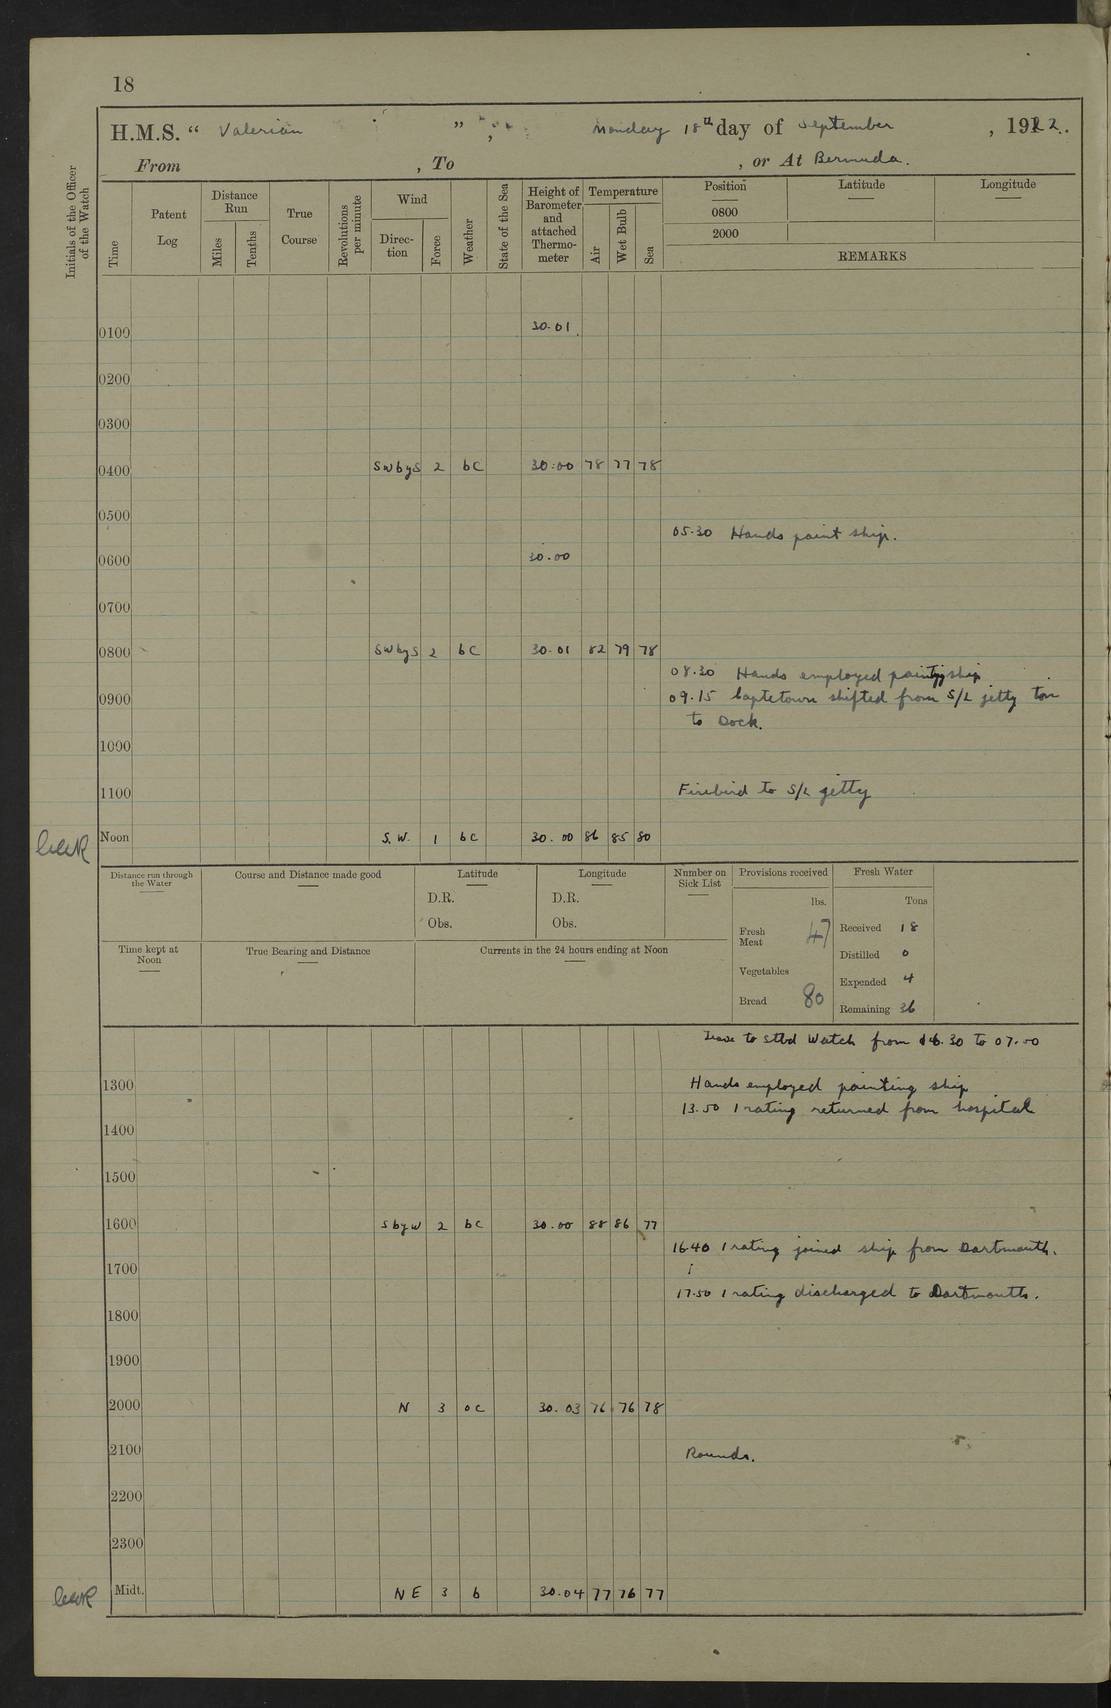 18
H.M.S. “ Valerian ” , Monday 18th day of September , 1922.
From , To , or At Bermuda.
Initials of the Officer of the Watch
Time
Patent Log
Distance Run
Miles
Tenths
True Course
Revolutions per minute
Wind
Direc-tion
Force
Weather
State of the Sea
Height of Barometer and attached Thermo-meter
Temperature
Air
Wet Bulb
Sea
Position Latitude Longitude
0800
2000
REMARKS
0100 30.01
0200
0300
0400 SWbyS 2 bc 30.00 78 77 78
0500
05.30 Hands paint ship.
0600 30.00
0700
0800 SWbyS 2 bc 30.01 82 79 78
08.30 Hands employed painting ship
0900 09.15 Capetown shifted from S/L jetty
to Dock.
1000
1100 Firebird to S/L jetty
Noon S.W. 1 bc 30.00 86 85 80
Distance run through the Water
Course and Distance made good
Latitude
D.R.
Obs.
Longitude
D.R.
Obs.
Number on Sick List
Provisions received
lbs.
Fresh Meat 47
Vegetables
Bread 80
Fresh Water
Tons
Received 18
Distilled 0
Expended 4
Remaining 36
Time kept at Noon
True Bearing and Distance
Currents in the 24 hours ending at Noon
Leave to Stbd Watch from 16.30 to 07.00
1300 Hands employed painting ship
13.50 1 rating returned from hospital
1400
1500
1600 SbyW 2 bc 30.00 88 86 77
16.40 1 rating joined ship from Dartmouth.
1700
17.50 1 rating discharged to Dartmouth.
1800
1900
2000 N 3 oc 30.03 76 76 78
2100 Rounds.
2200
2300
Midt. NE 3 b 30.04 77 76 77